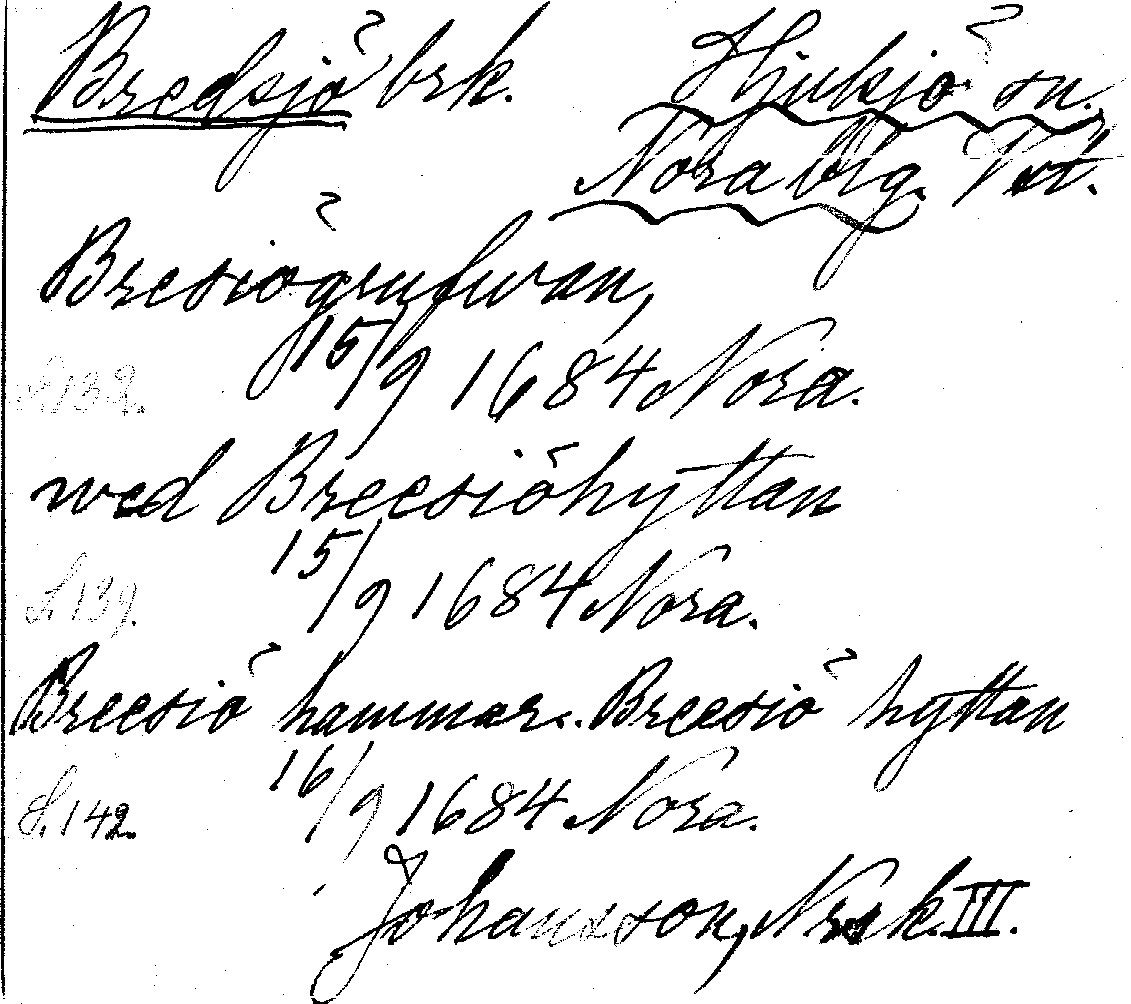 Bredsjö brk. Hjulsjö sn.
Nora bg. Vst.
Bresiögrufwan,
S. 139. 15/9 1684 Nora.
wed Breesiöhyttan
S. 139. 15/9 1684 Nora.
Breesiö hammar.. Breesiö hyttan
S. 142. 16/9 1684 Nora.
Johansson, Nrsk. III.